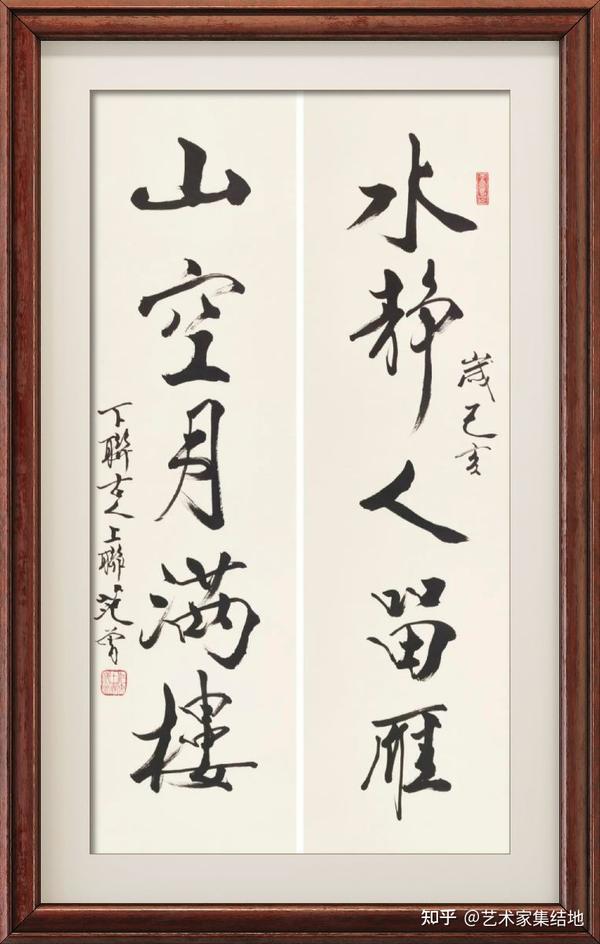 水静人留雁
歲己亥
山空月满樓
下聯古人上聯范曾
知乎 @艺术家集结地